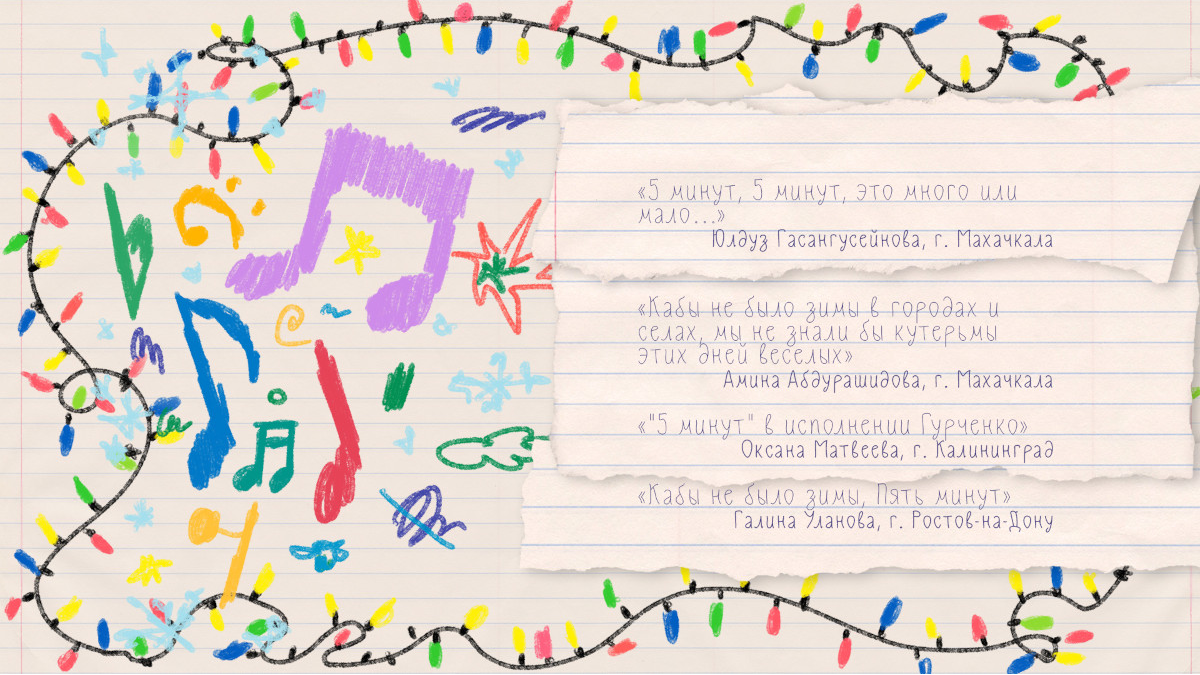 «5 минут, 5 минут, это много или
мало...»
Юлдуз Гасангусейнова, г. Махачкала
«Кабы не было зимы в городах и
селах, мы не знали бы кутерьмы
этих дней веселых»
Амина Абдурашидова, г. Махачкала
«"5 минут" в исполнении Гурченко»
Оксана Матвеева, г. Калининград
«Кабы не было зимы, Пять минут»
Галина Уланова, г. Ростов-на-Дону